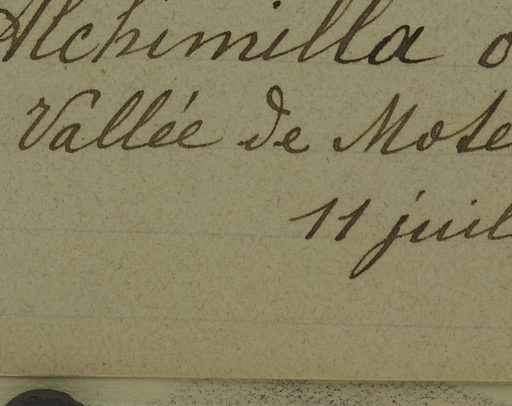 Alchimilla o
Vallée de Mote
11 juil